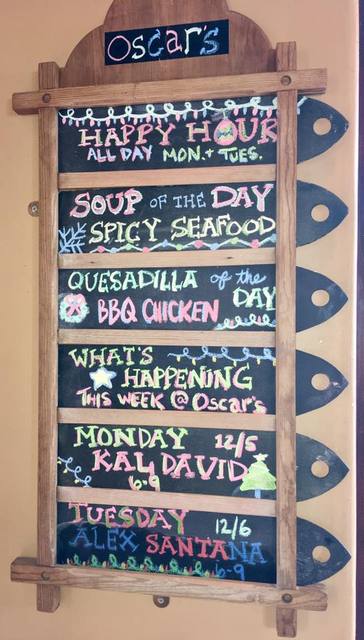 Oscar's
HAPPY HOUR
ALL DAY MON. + TUES.
SOUP OF THE DAY
SPICY SEAFOOD
QUESADILLA of the
DAY
BBQ CHICKEN
WHAT'S
HAPPENING
THIS WEEK @ Oscar's
MONDAY 12/5
KAL DAVID
6-9
TUESDAY 12/6
ALEX SANTANA
6-9